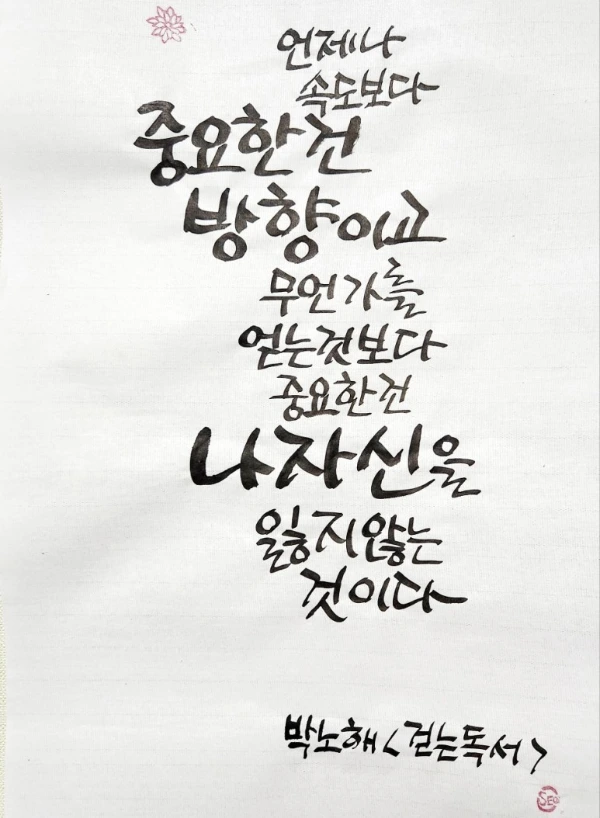 언제나
속도보다
중요한건
방향이고
무언가를
얻는것보다
중요한건
나자신을
잃지않는
것이다
박노해<걷는독서>
SEO